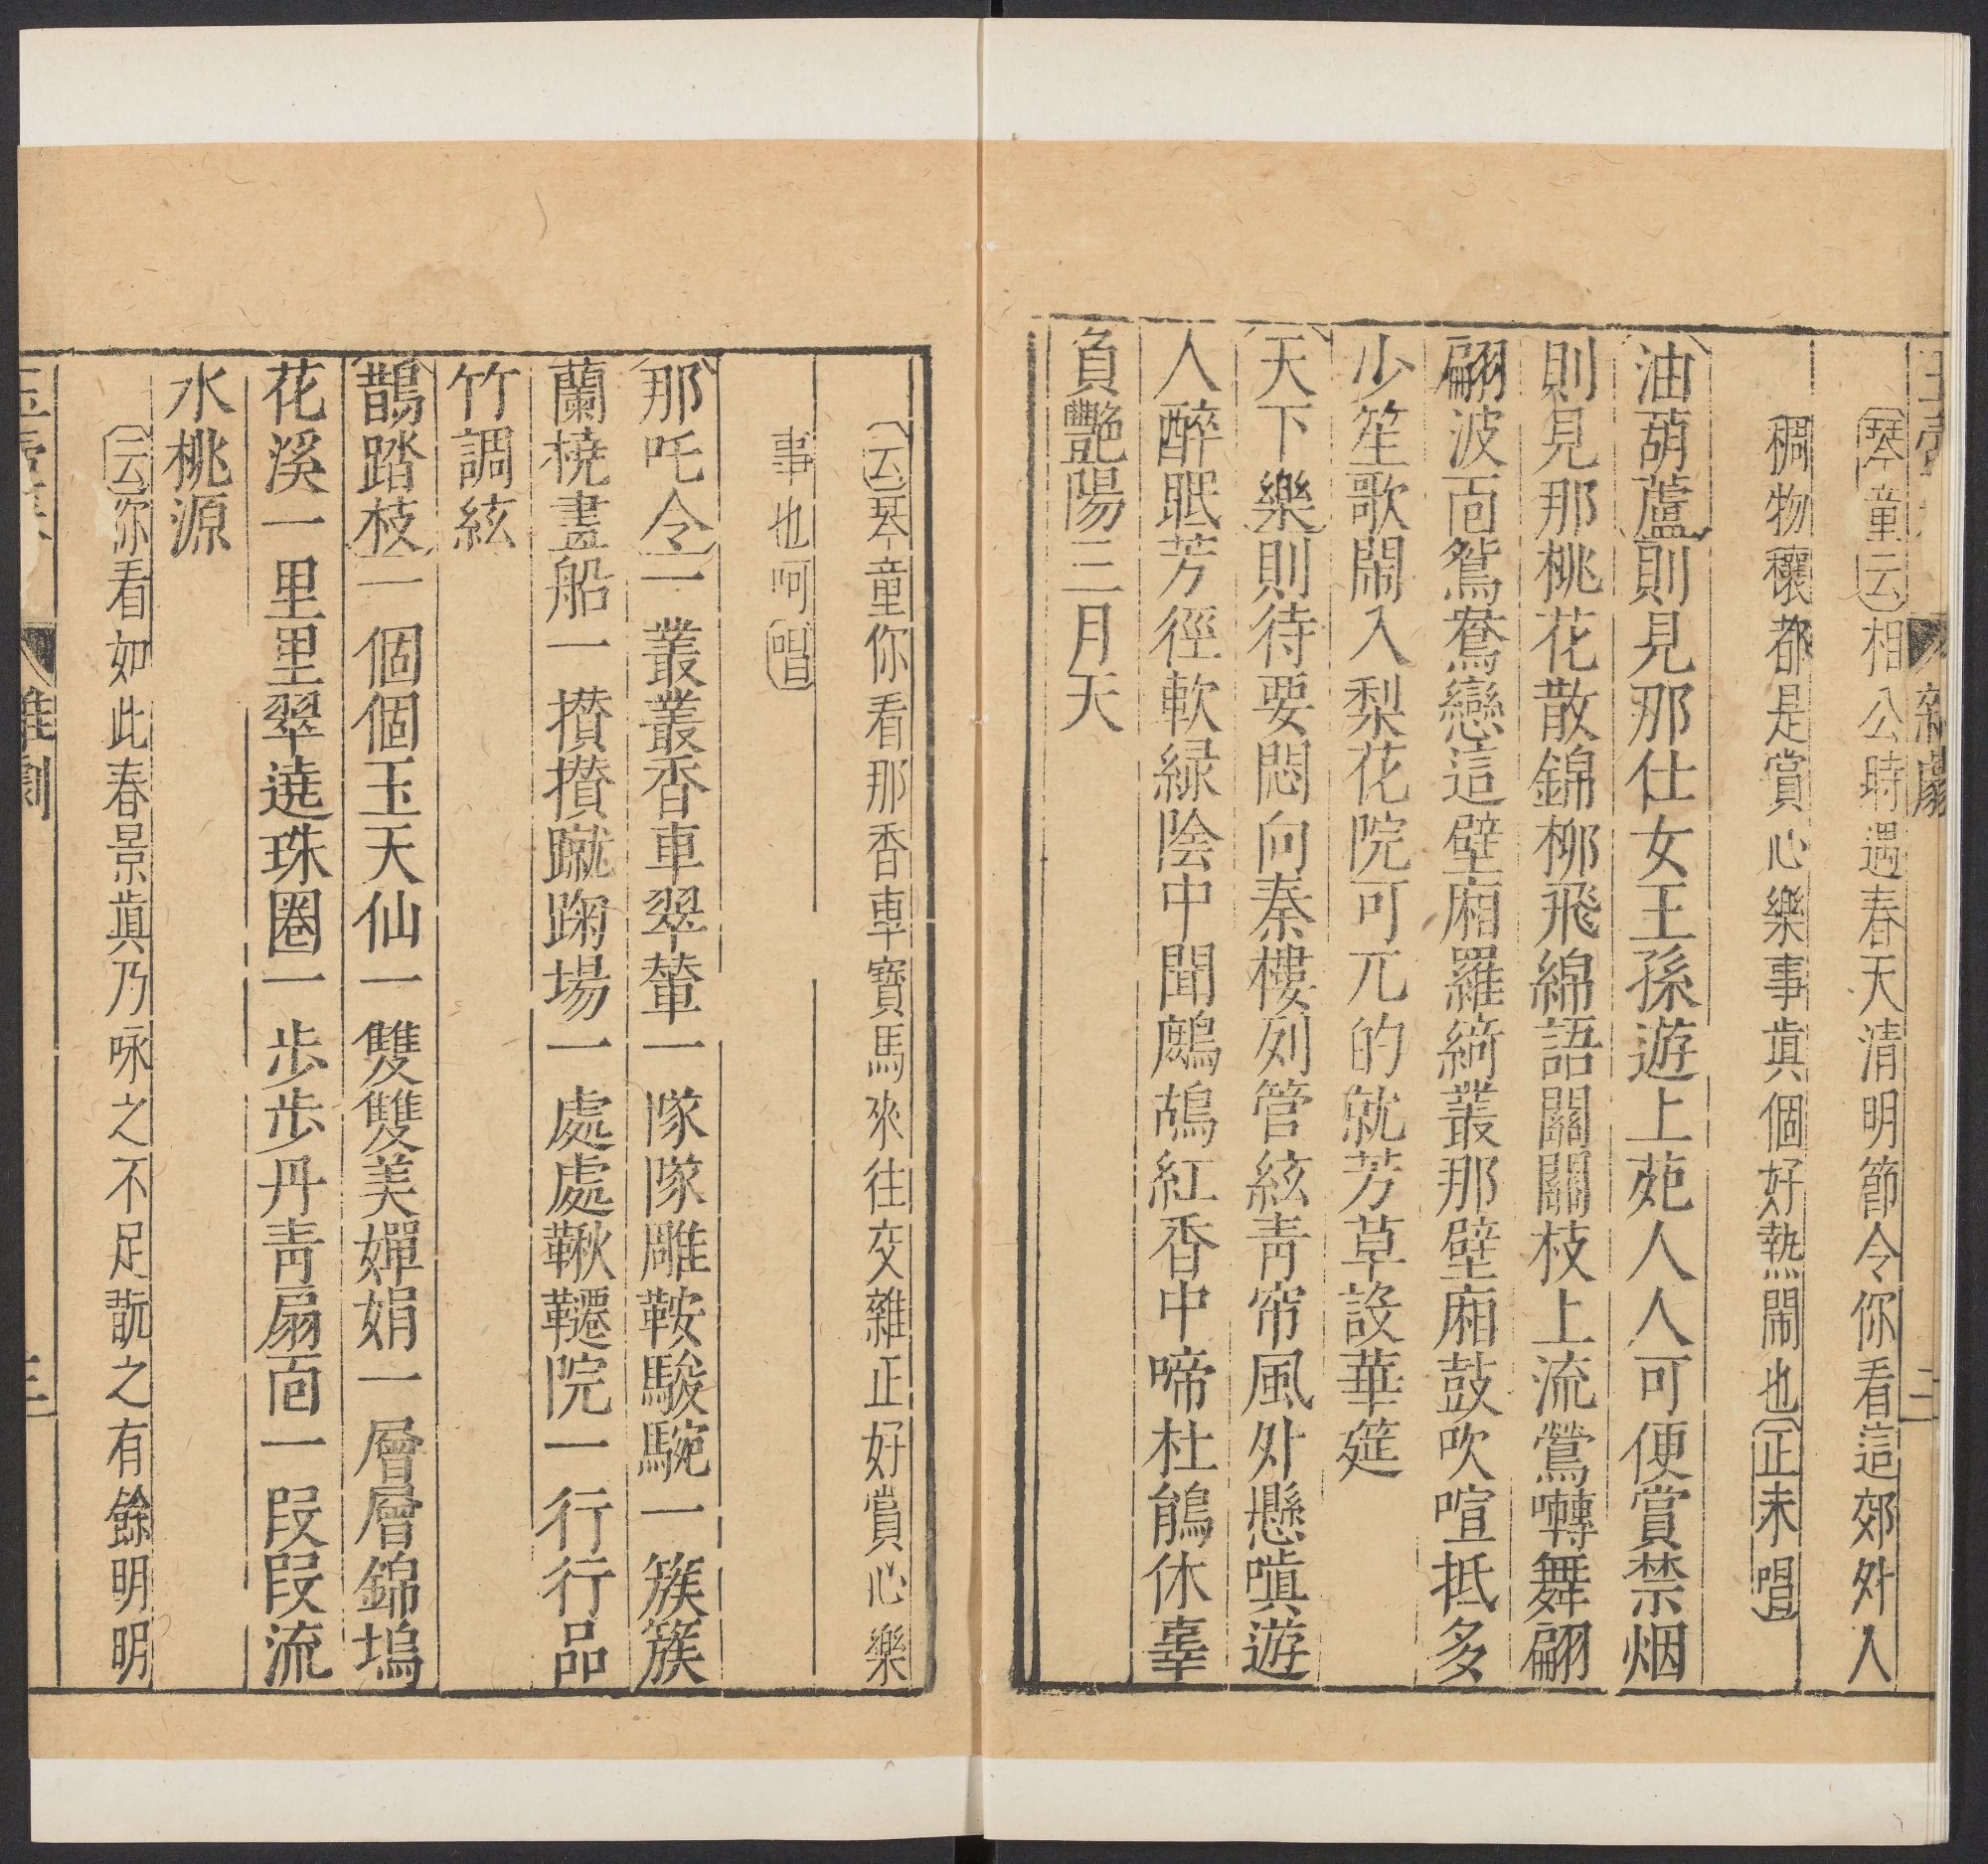 雜劇
二
琴童云相公時遇春天清明節令你看這郊外人
稠物穰都是賞心樂事眞個好熱鬧也正末唱
油葫蘆則見那仕女王孫遊上苑人人可便賞禁烟
則見那桃花散錦柳飛綿語關關枝上流鶯囀舞翩
翩波面鴛鴦戀這壁廂羅綺叢那壁廂鼓吹喧抵多
少笙歌鬧入梨花院可兀的就芳草設華筵
天下樂則待要悶向秦樓列管絃靑帘風外懸嗔遊
人醉眠芳徑軟緑陰中聞鷓鴣紅香中啼杜鵑休辜
負艷陽三月天
云琴童你看那香車寶馬來往交雜正好賞心樂
事也呵唱
那吒令一叢叢香車翠輦一隊隊雕鞍駿騕一簇簇
蘭橈畫船一攢攢蹴踘場一處處鞦韆院一行行品
竹調絃
鵲踏枝一個個玉天仙一雙雙美嬋娟一層層錦塢
花溪一里里翠遶珠圈一步步丹靑扇面一叚叚流
水桃源
云你看如此春景眞乃咏之不足翫之有餘明明
雜劇
三